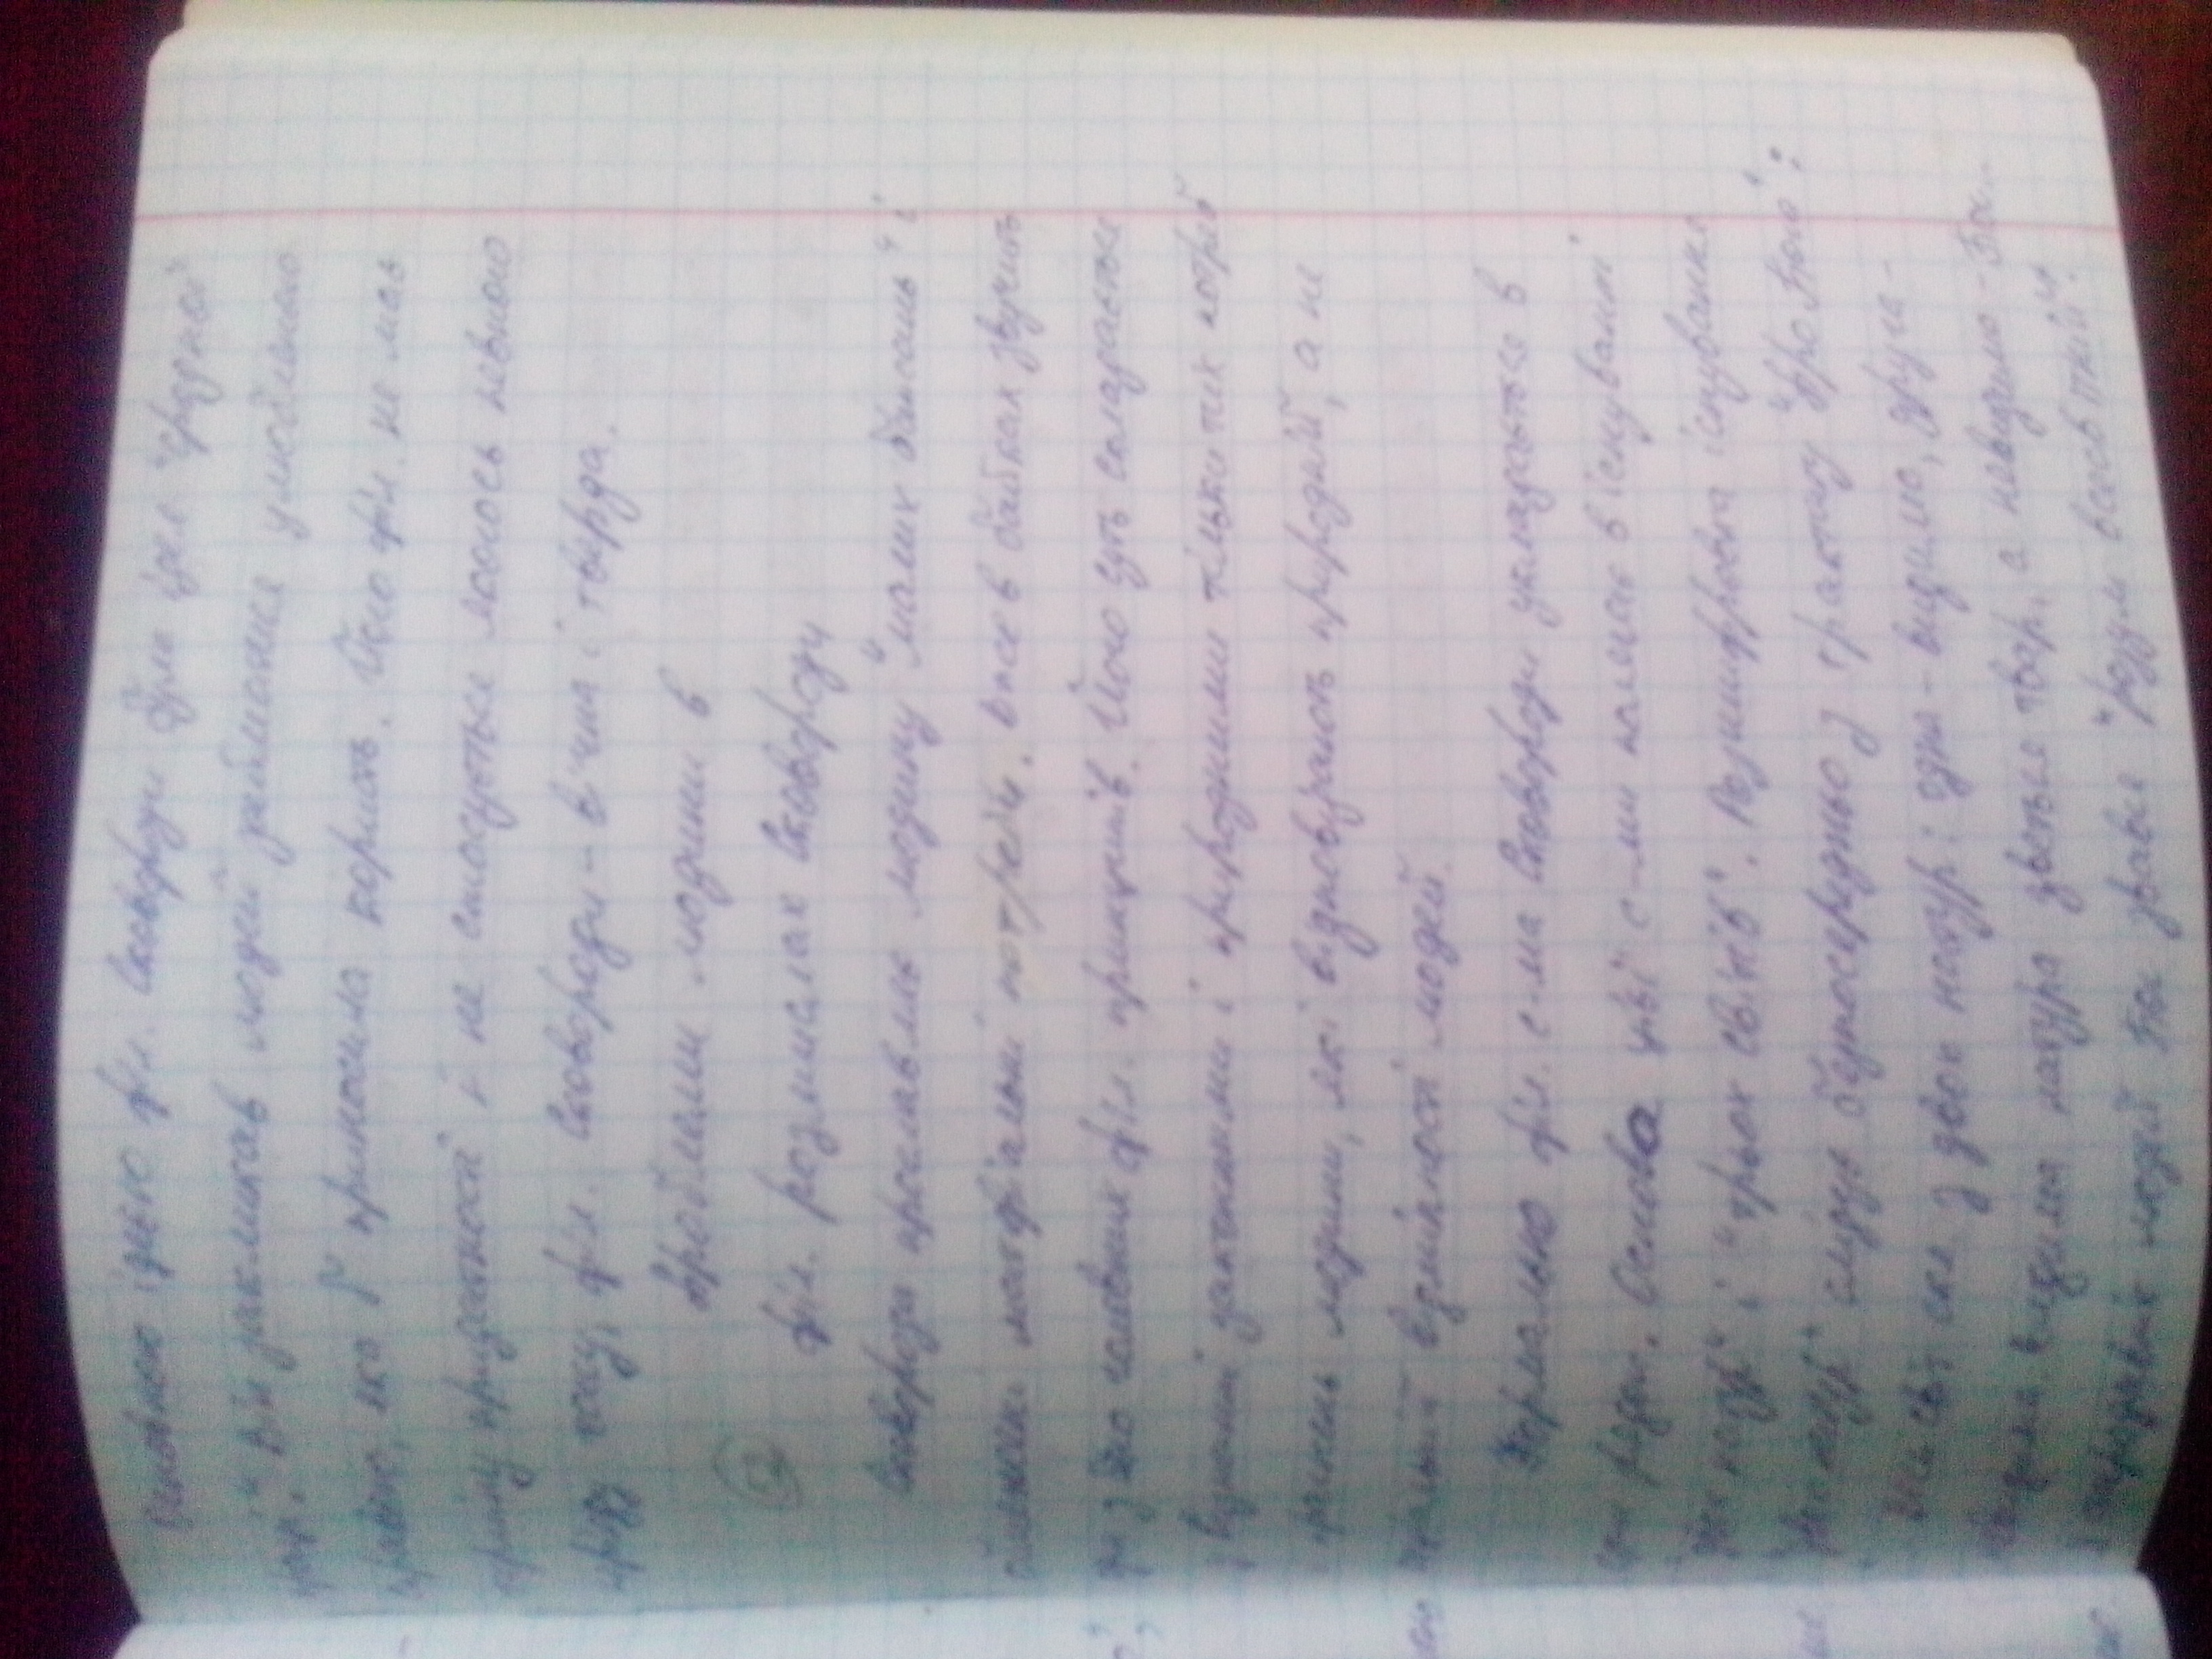 Основною ідеєю філ. Сковороди була ідея "сродної
праці". Він закликав людей займатися улюбленою
справою, яка б приносила користь. Його філ. не має
терміну придатності і не стосується якогось певного
період часу, філ. Сковороди – вічна і тверда.
Проблеми людини в
філ. розмислах Сковороди
Сковорода прославляє людину "малих бажань" і
обмежені матеріальні потреби. Вже в байках звучить
з його головних філ. принципів. Його суть складається
з визнанні законними і природними тільки тих потреб
прагнень людини, які відповідають природній, а не
соціальній відмінності людей.
Формально філ. с-ма Сковороди укладається в
рядок. Основа цієї с-ми полягає в існуванні
"двох натур" і "трьох світів". Розшифровка існування
"двох натур" слідує безпосередньо з трактату "Про Бога":
Весь світ скл. з двох натур: одна – видима, друга –
невидима. Видима натура зветься твар, а невидима – Бог..
У стародавніх людей Бог звався "розум всесвітній".